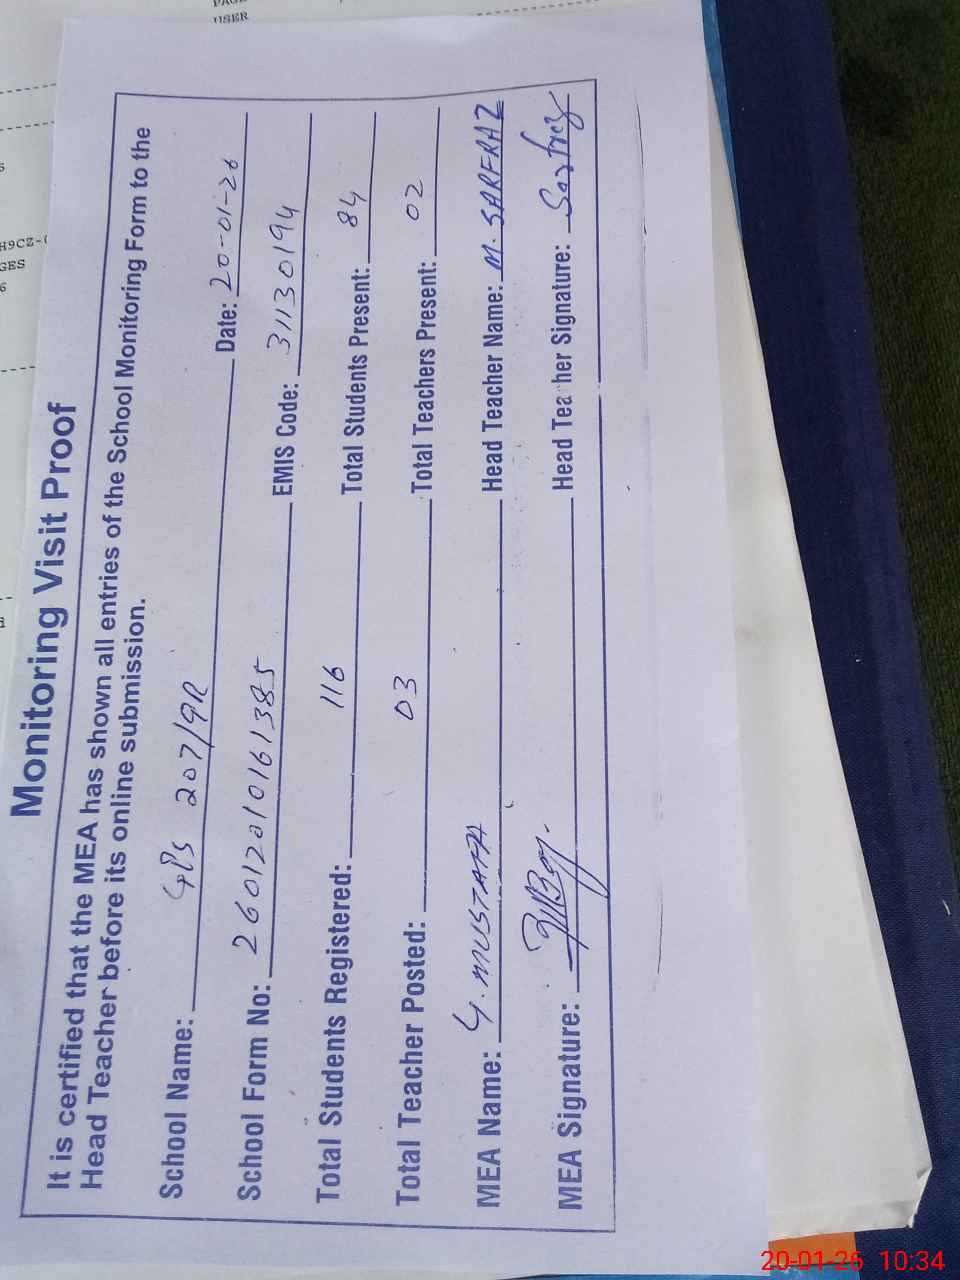 PAGE
USER
H9CZ-
GES
6
Monitoring Visit Proof
It is certified that the MEA has shown all entries of the School Monitoring Form to the
Head Teacher before its online submission.
School Name: GPS 207/9R Date: 20-01-26
School Form No: 26012010161385 EMIS Code: 31130194
Total Students Registered: 116 Total Students Present: 84
Total Teacher Posted: 03 Total Teachers Present: 02
MEA Name: G. MUSTAFA Head Teacher Name: M. SARFRAZ
MEA Signature: Head Teacher Signature: Sarfraz
20-01-26 10:34